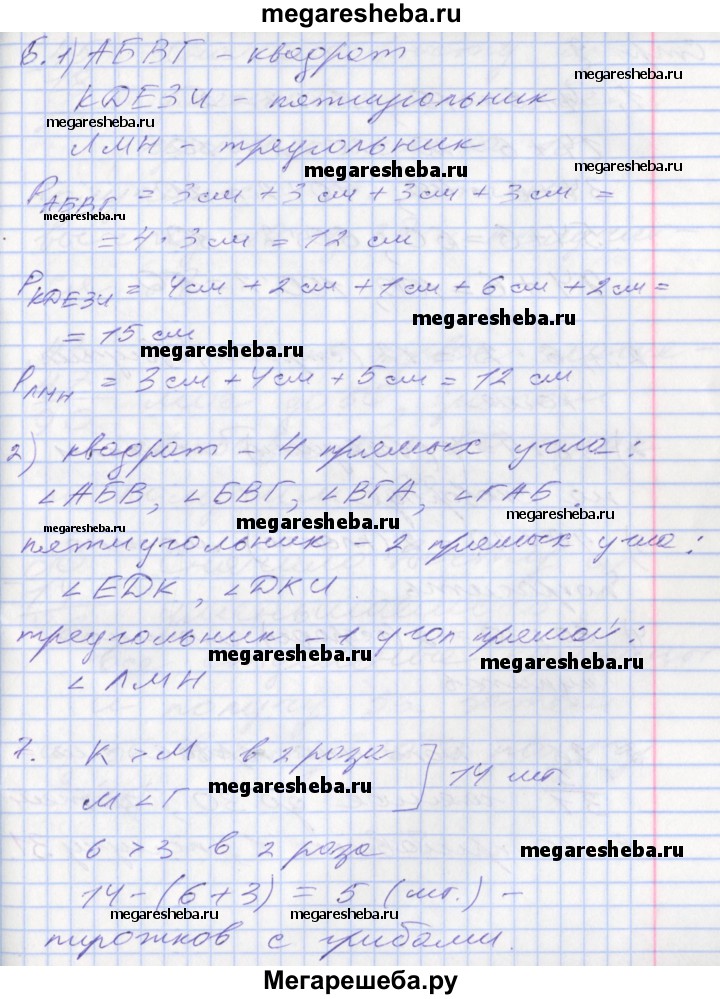 megaresheba.ru
б. 1) АБВГ – квадрат
megaresheba.ru
КДЕЗИ – пятиугольник
megaresheba.ru
ЛМН – треугольник
megaresheba.ru
megaresheba.ru
Р АБВГ = 3 см + 3 см + 3 см + 3 см =
megaresheba.ru
= 4 · 3 см = 12 см
Р КДЕЗИ = 4 см + 2 см + 1 см + 6 см + 2 см =
megaresheba.ru
= 15 см
megaresheba.ru
Р ЛМН = 3 см + 4 см + 5 см = 12 см
2) квадрат – 4 прямых угла:
∠АБВ, ∠БВГ, ∠ВГА, ∠ГАБ;
megaresheba.ru
megaresheba.ru
megaresheba.ru
пятиугольник – 2 прямых угла:
∠ЕДК, ∠ДКИ
треугольник – 1 угол прямой:
megaresheba.ru
megaresheba.ru
∠ЛМН
7. К > М в 2 раза
14 шт.
М < Г
megaresheba.ru
6 > 3 в 2 раза
megaresheba.ru
14 – (6 + 3) = 5 (шт.) –
megaresheba.ru
megaresheba.ru
megaresheba.ru
пирожков с грибами.
Мегарешеба.ру